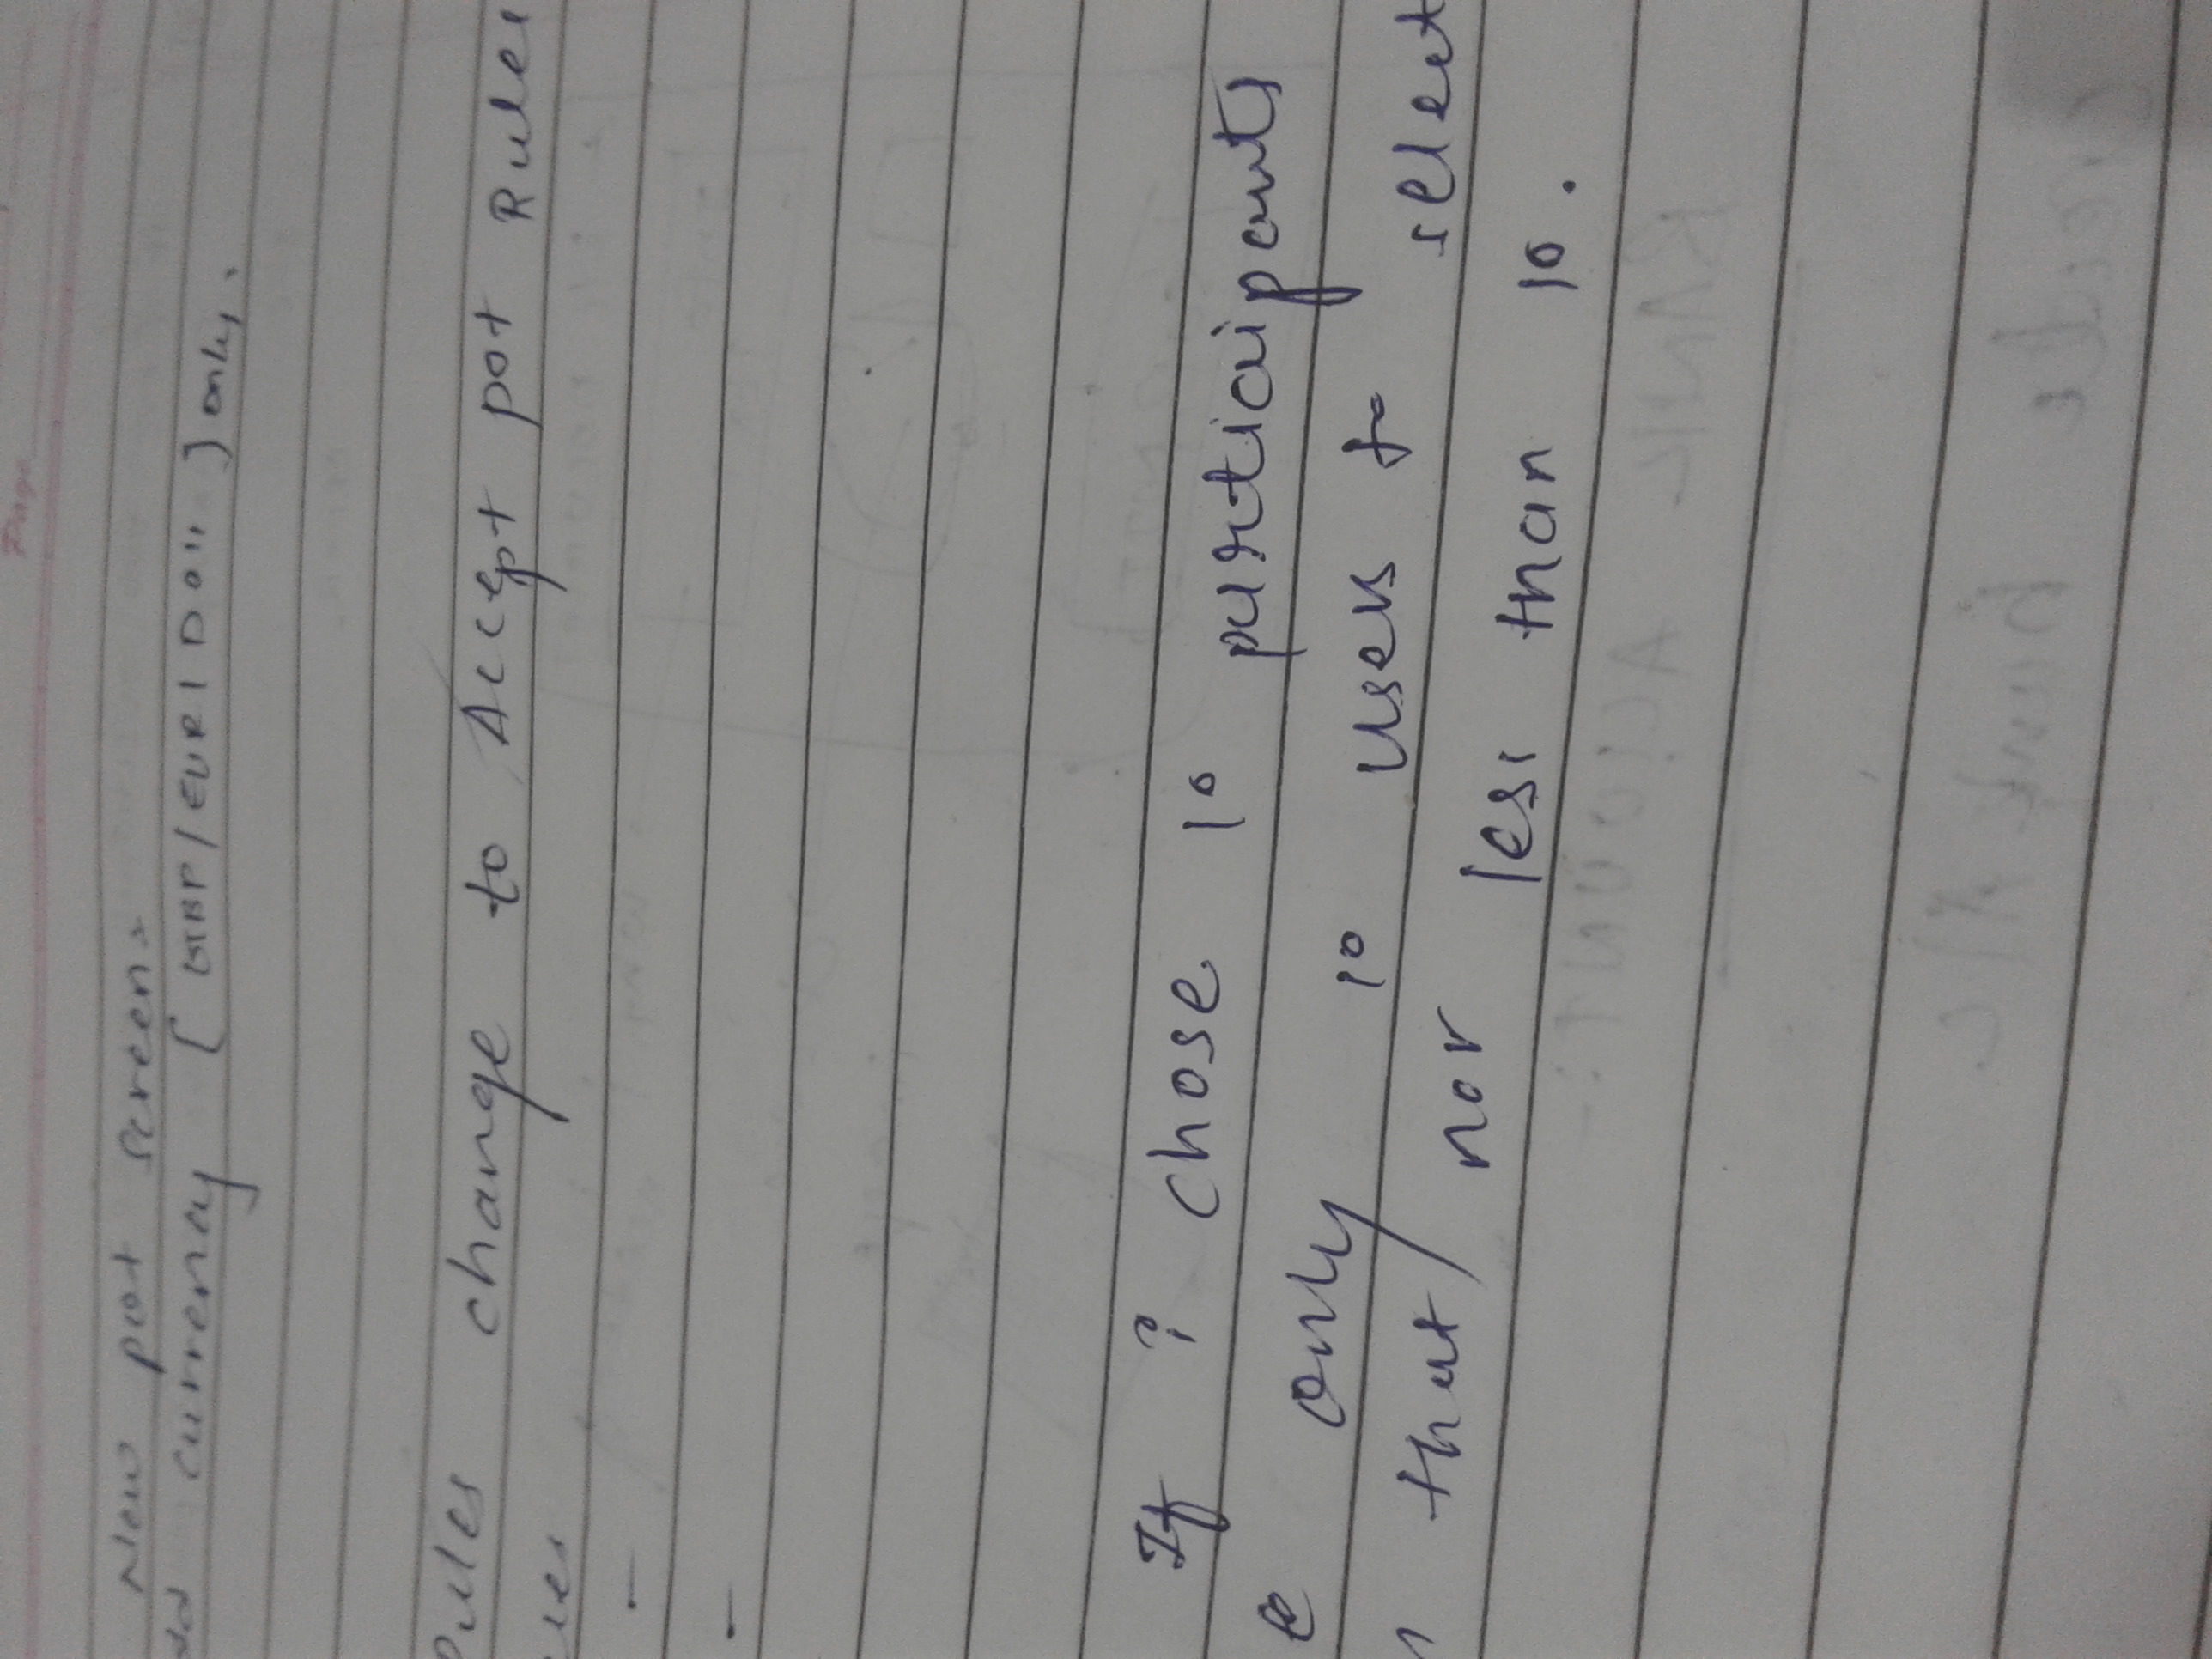 Page
New pot screen:
dd currency [ GBP / EUR / Doll ] only.
Rules change to Accept pot Rules
ules
-
-
If i chose 10 participants
e only 10 users to select
n that / nor less than 10.